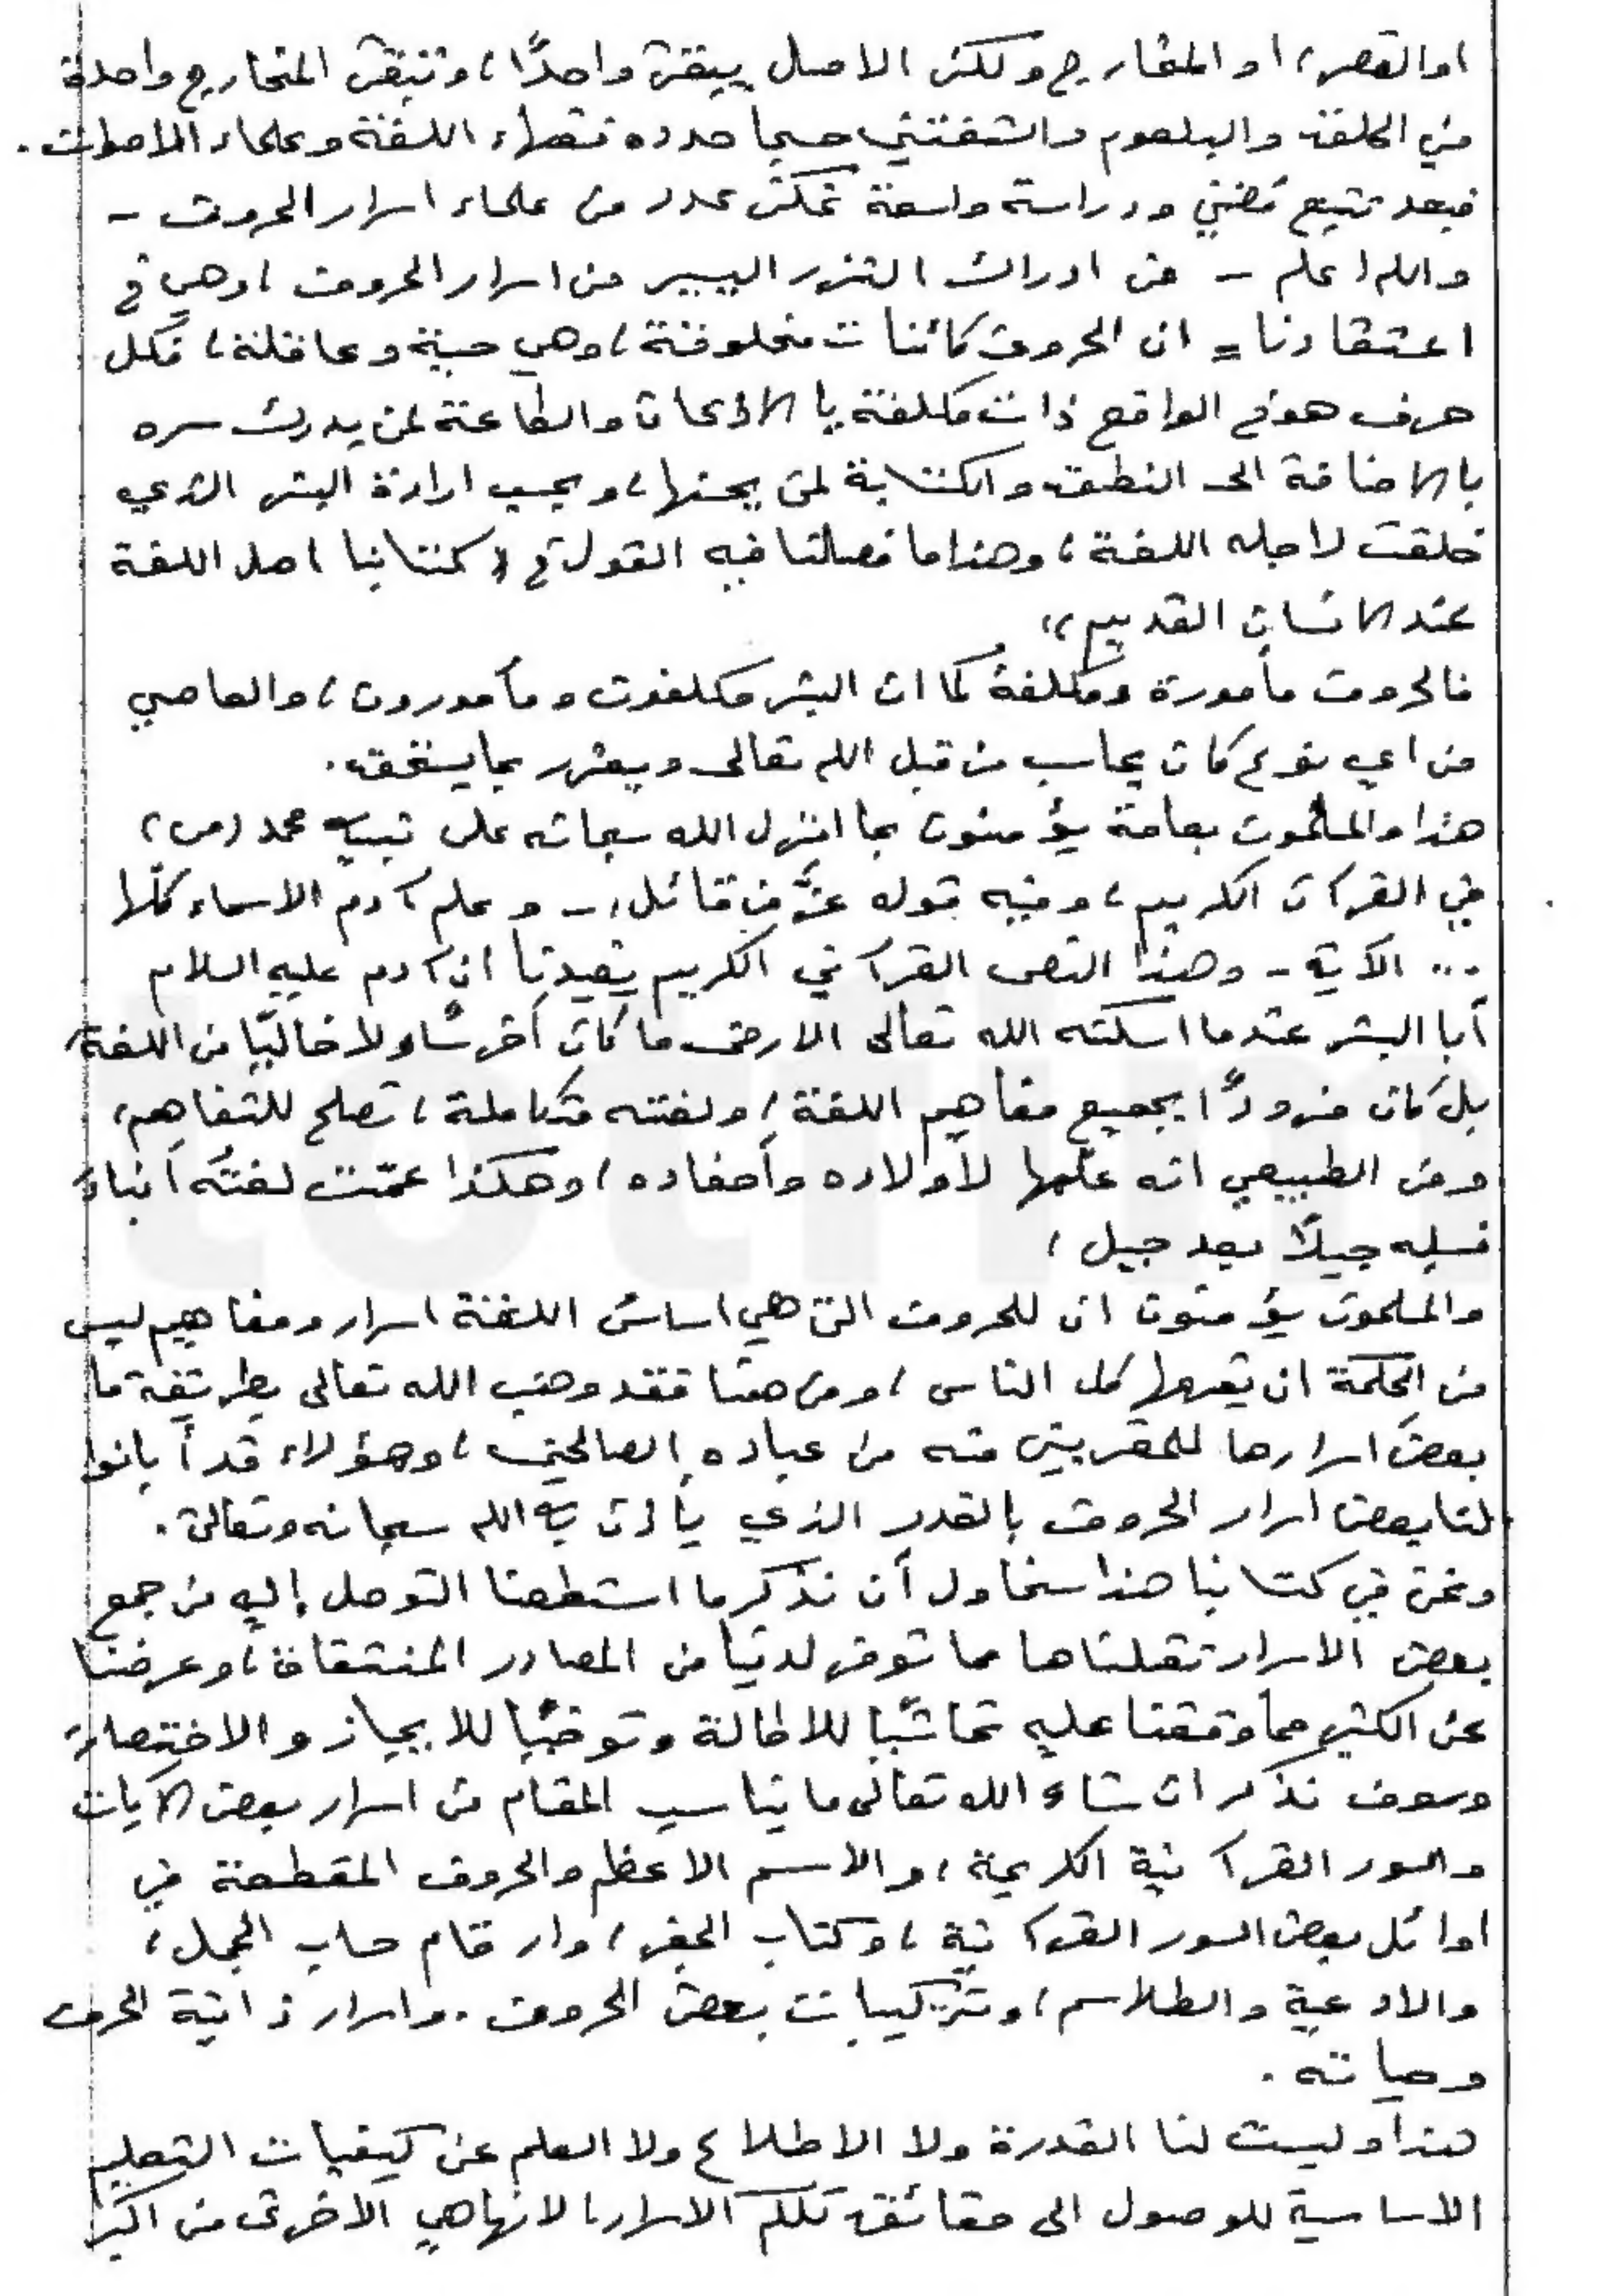 او القصر، او المخارج ولكن الاصل يبقى واحدًا، وتبقى المخارج واحدة
من الحلق والبلعوم والشفتين حسبما حدده فقهاء اللغة وعلماء الاصوات.
فبعد تتبع مضني ودراسة واسعة تمكن عدد من علماء اسرار الحروف -
والله اعلم - من ادراك النزر اليسير من اسرار الحروف، وهي في
اعتقادنا = ان الحروف كائنات مخلوقة، وهي حية وعاقلة، فكل
حرف هو في الواقع ذات مكلفة بالاذعان والطاعة لمن يدرك سره
بالاضافة الى النطق والكتابة لمن يحسنها، وبحسب ارادة البشر الذي
خلقت لاجله اللغة، وهذا ما فصلنا فيه القول في «كتابنا اصل اللغة
عند الانسان القديم»
فالحروف مأمورة ومكلفة كما ان البشر مكلفون ومأمورون، والعاصي
من اي نوع كان يحاسب من قبل الله تعالى ويعزر بما يستحق.
هذا والمسلمون بعامة يؤمنون بما انزل الله سبحانه على نبيه محمد (ص)
في القرآن الكريم، وفيه قوله عزَّ من قائل :- وعلم آدم الاسماء كلّها
... الآية - وهذا النص القرآني الكريم يفيدنا ان آدم عليه السلام
أبا البشر عندما اسكنه الله تعالى الارض ما كان أخرسًا ولا خاليًا من اللغة،
بل كان مزودًا بجميع مفاهيم اللغة، ولغته متكاملة، تصلح للتفاهم،
ومن الطبيعي انه علّمها لأولاده وأحفاده، وهكذا عمّت لغتُه أبناءَ
نسله جيلاً بعد جيل،
والمسلمون يؤمنون ان للحروف التي هي اساس اللغة اسرار ومفاهيم ليس
من الحكمة ان يعرفها كل الناس، ومن هنا فقد وهب الله تعالى بطريقة ما
بعض اسرارها للمقربين منه من عباده الصالحين، وهؤلاء قد أبانوا
لنا بعض اسرار الحروف بالقدر الذي يأذن به الله سبحانه وتعالى.
ونحن في كتابنا هذا سنحاول أن نذكر ما استطعنا التوصل إليه من جمع
بعض الاسرار نقلناها مما توفر لدينا من المصادر المنتقاة، وعرضنا
عن الكثير مما وقفنا عليه تحاشيًا للاطالة وتوخيًا للايجاز والاختصار،
وسوف نذكر ان شاء الله تعالى ما يناسب المقام من اسرار بعض الآيات
والسور القرآنية الكريمة، والاسم الاعظم والحروف المقطعة في
اوائل بعض السور القرآنية، وكتاب الجفر، وارقام حساب الجمل،
والادعية والطلاسم، وتركيبات بعض الحروف. واسرار ذاتية الحرف
وحياته.
هذا وليست لنا القدرة ولا الاطلاع ولا العلم عن كيفيات التعليم
الاساسية للوصول الى حقائق تلكم الاسرار، لانها هي الاخرى من اكبر